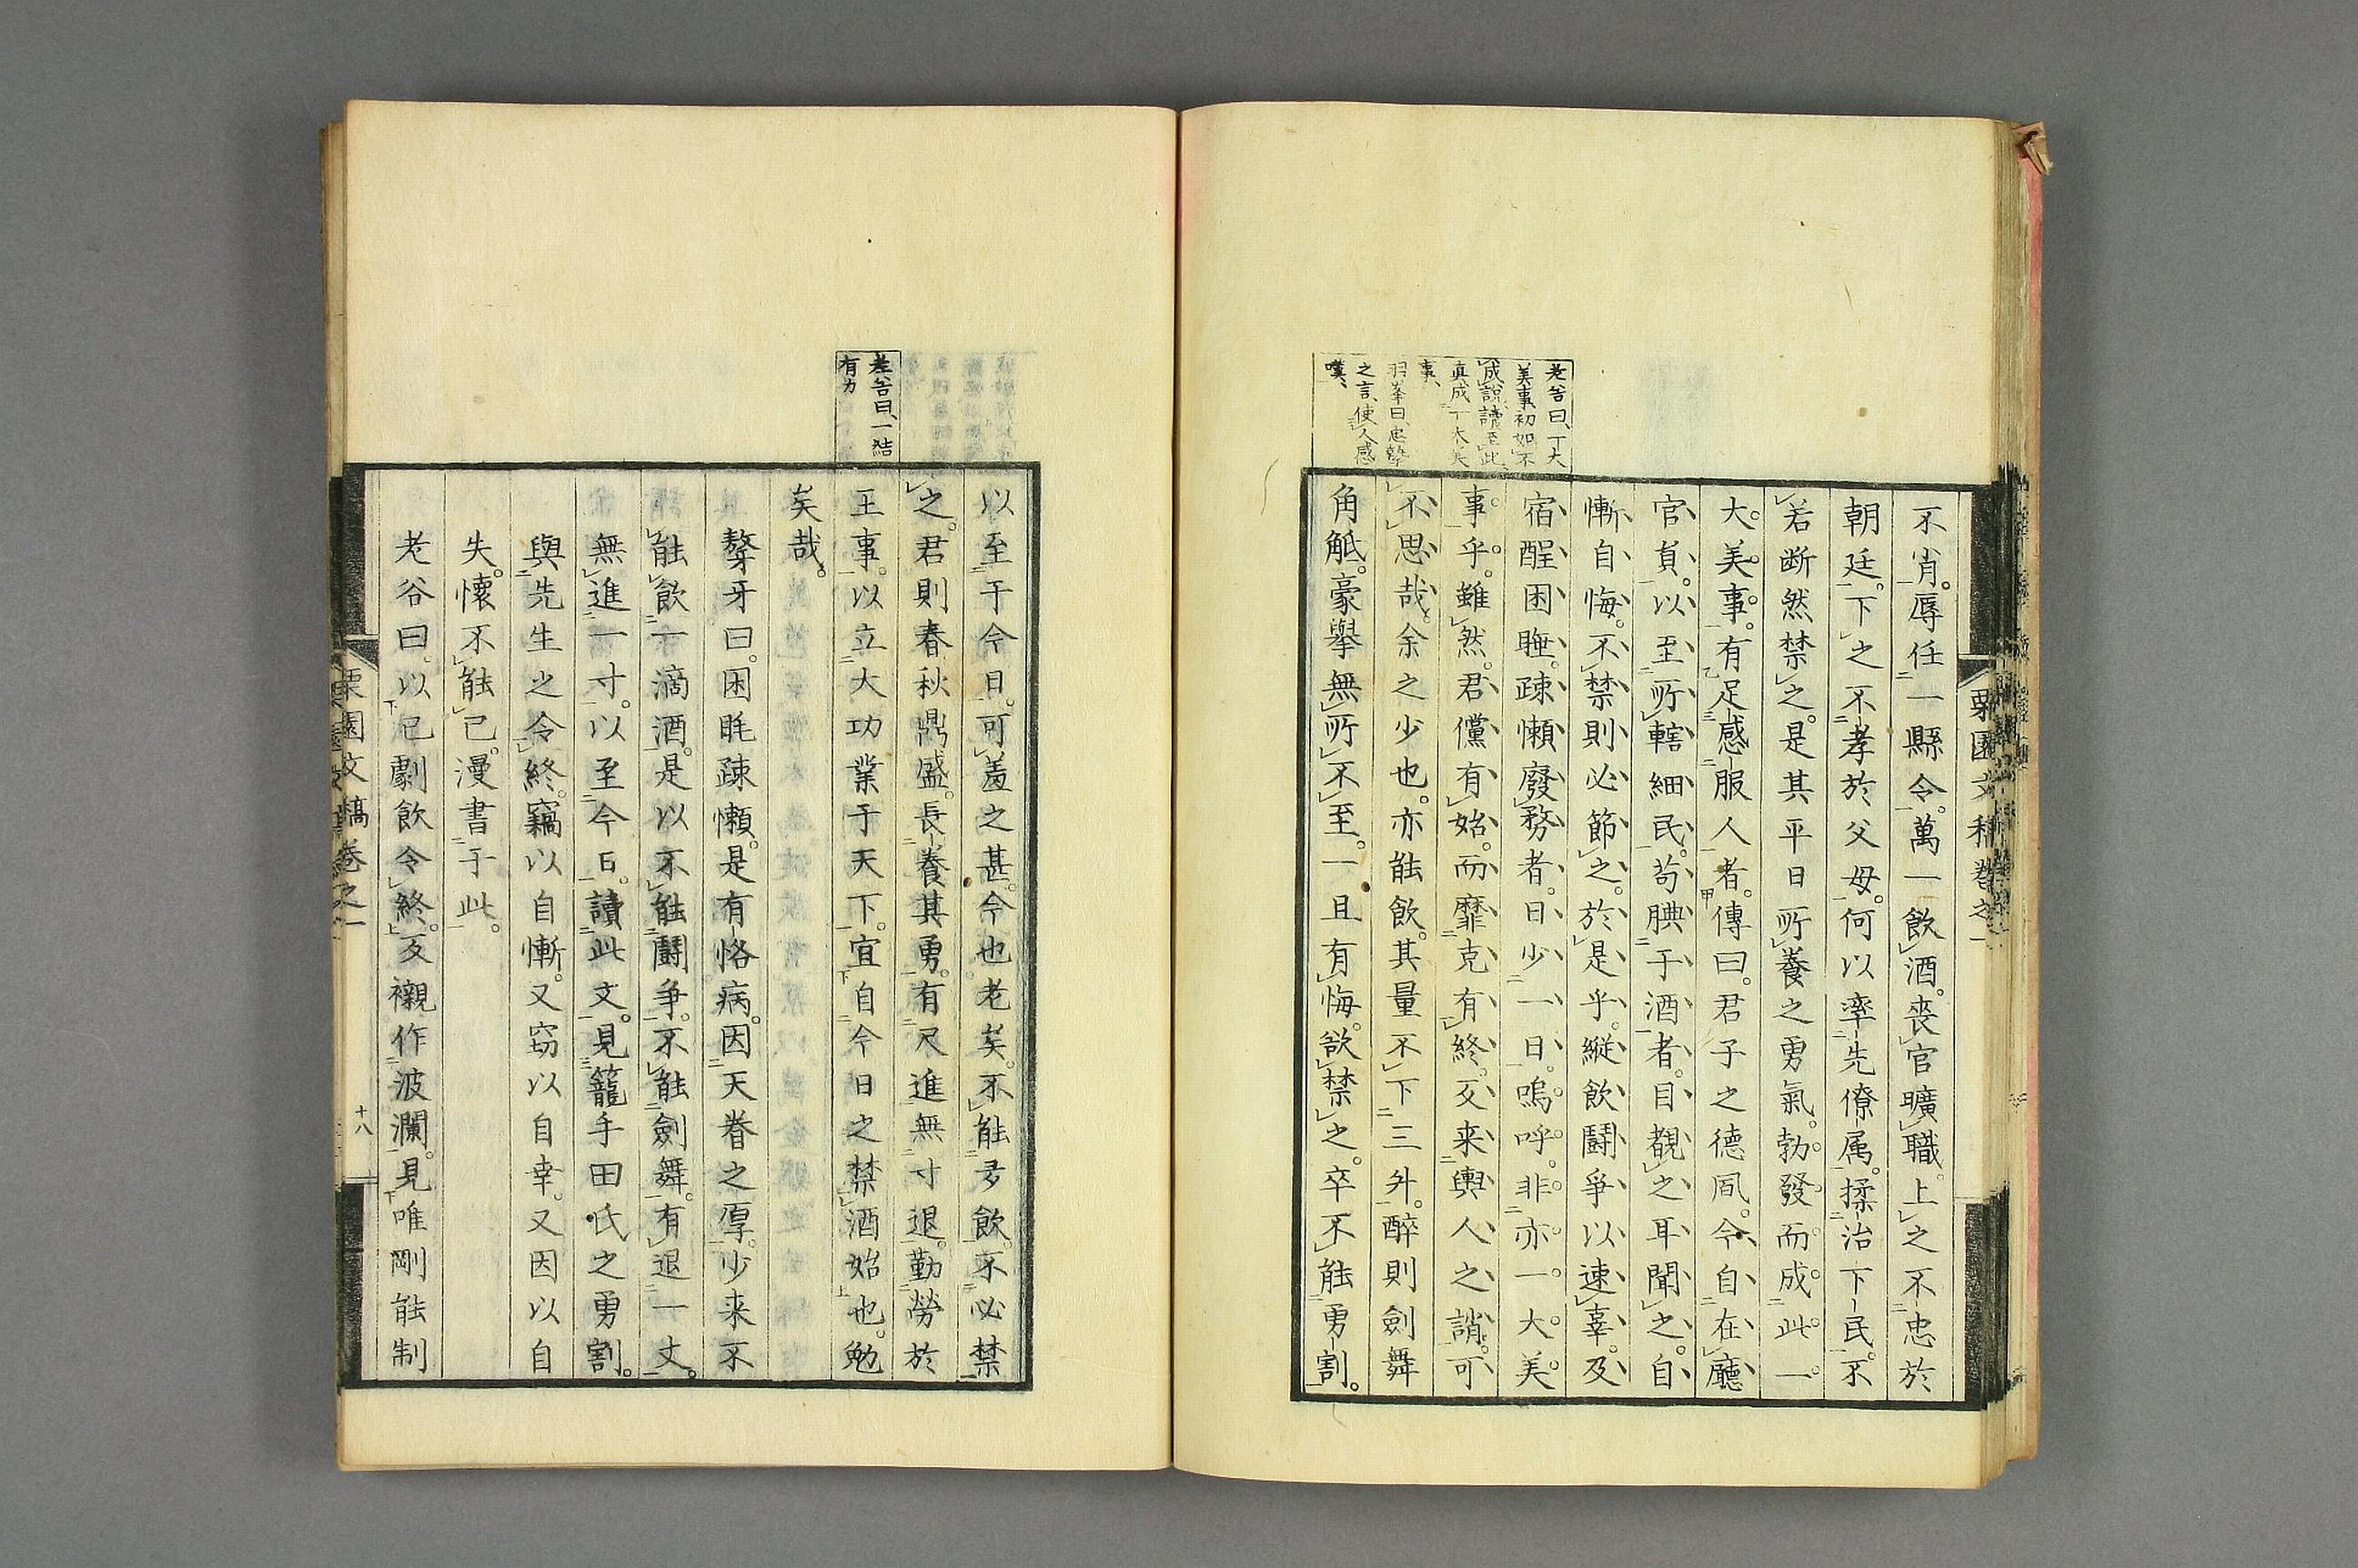 栗園文稿卷之一
不肖。辱任一縣令。萬一飲酒。喪官曠職。上之不忠於
朝廷。下之不孝於父母。何以率先僚属。揉治下民。不
若断然禁之。是其平日所養之勇氣。勃發而成此一
大美事。有足感服人者。傳曰。君子之德風。令自在廳
官負。以至所轄細民。苟腆于酒者。目覩之耳聞之。自
慚自悔。不禁則必節之。於是乎。縱飲鬪爭以速辜。及
宿酲困睡。踈懶廢務者。日少一日。嗚呼。非亦一大美
事乎。雖然。君儻有始。而靡克有終。反来輿人之誚。可
不思哉。余之少也。亦能飲。其量不下三升。醉則劍舞
角觝。豪擧無所不至。一旦有悔。欲禁之。卒不能勇割。
老谷曰、一大
美事、初如不
成說、讀至此
真成一大美
事、
羽峯曰、忠摯
之言、使人感
嘆、
以至于今日。可羞之甚。今也老矣。不能多飲。不必禁
之。君則春秋鼎盛。長養其勇。有尺進無寸退。勤勞於
王事。以立大功業于天下。宜自今日之禁酒始也。勉
矣哉。
老谷曰、一結
有力
聱牙曰。困眊踈懶。是有恪病。因天眷之厚。少来不
能飲一滴酒。是以不能鬪爭。不能劍舞。有退一丈。
無進一寸。以至今日。讀此文。見籠手田氏之勇割。
與先生之令終。竊以自慚。又窃以自幸。又因以自
失。懷不能已。漫書于此。
老谷曰。以已劇飲令終。反襯作波瀾。見唯剛能制
栗園文稿卷之一
十八